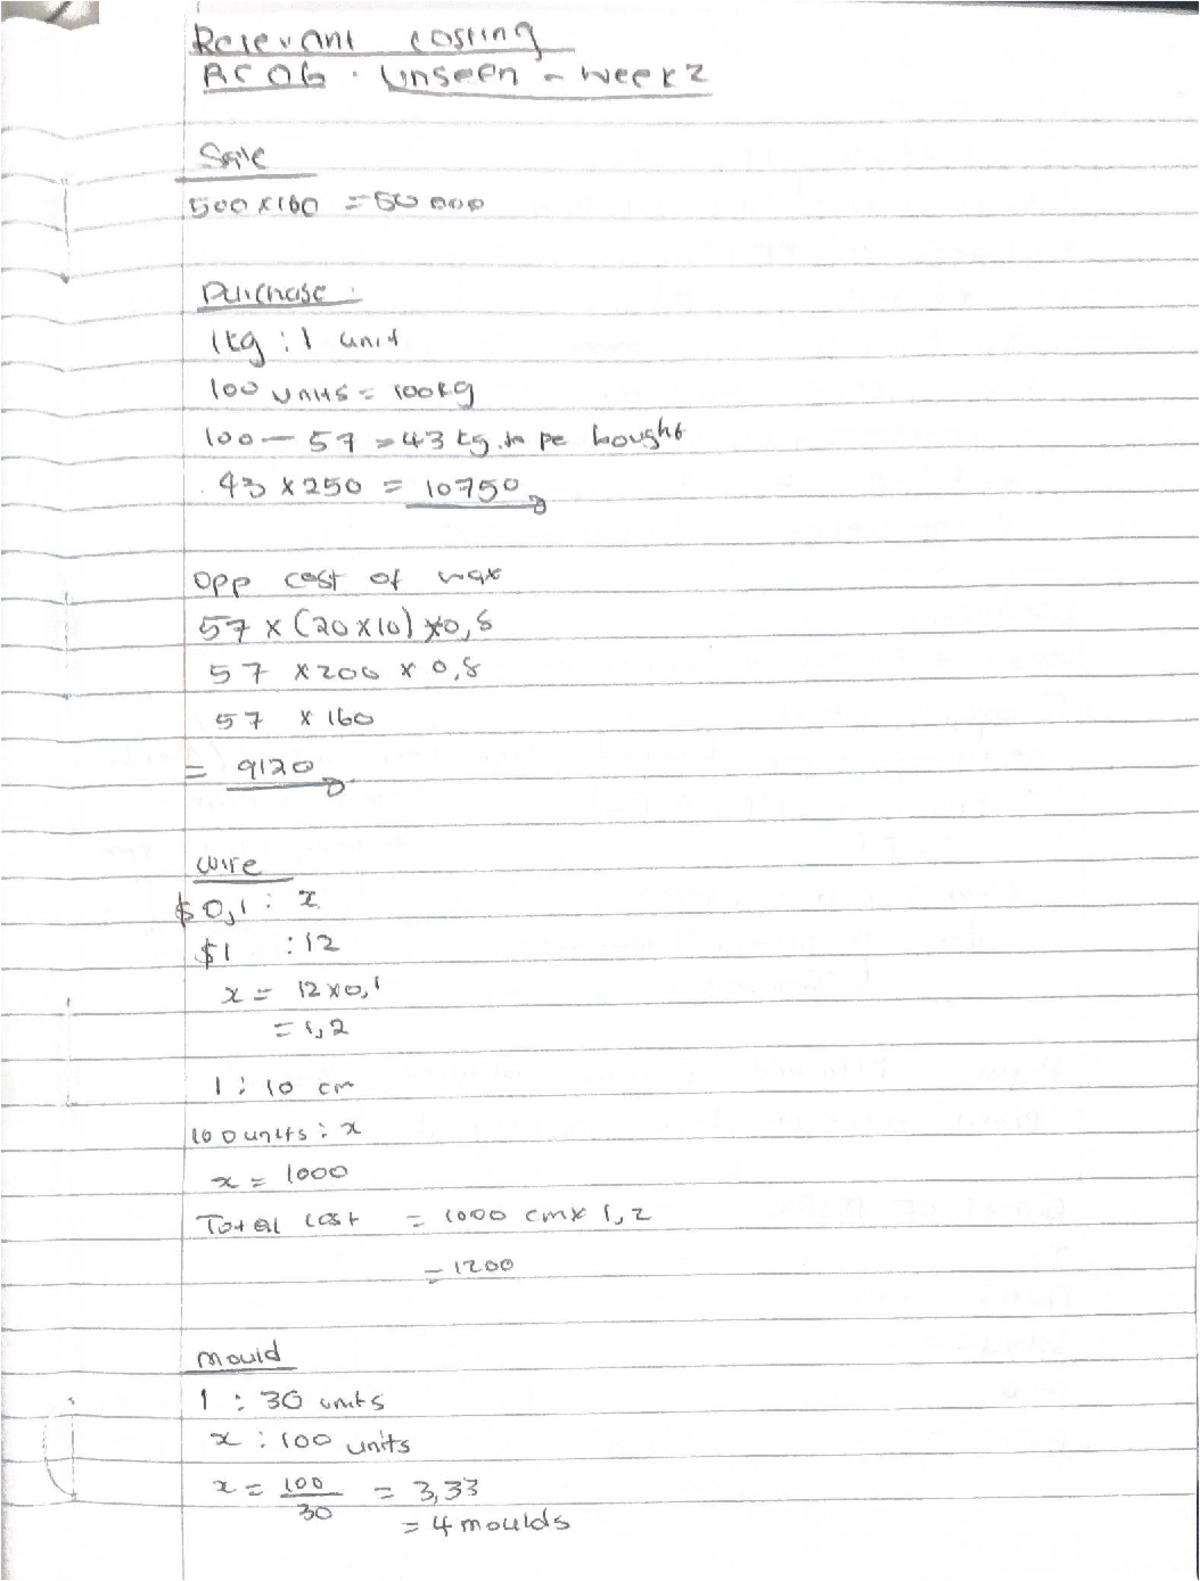 Relevant costing
ACOG . Unseen - week 2
Sale
500 x 100 = 50 000
Purchase :
1kg : 1 unit
100 units = 100kg
100 - 57 = 43 kg to be bought
43 x 250 = 10750
Opp cost of wax
57 x (20x10) x0,8
57 x 200 x 0,8
57 x 160
= 9120
Wire
$0,1 : x
$1 : 12
x = 12x0,1
= 1,2
1 : 10 cm
100 units : x
x = 1000
Total cost = 1000 cm x 1,2
= 1200
Mould
1 : 30 units
x : 100 units
x = 100/30 = 3,33
= 4 moulds